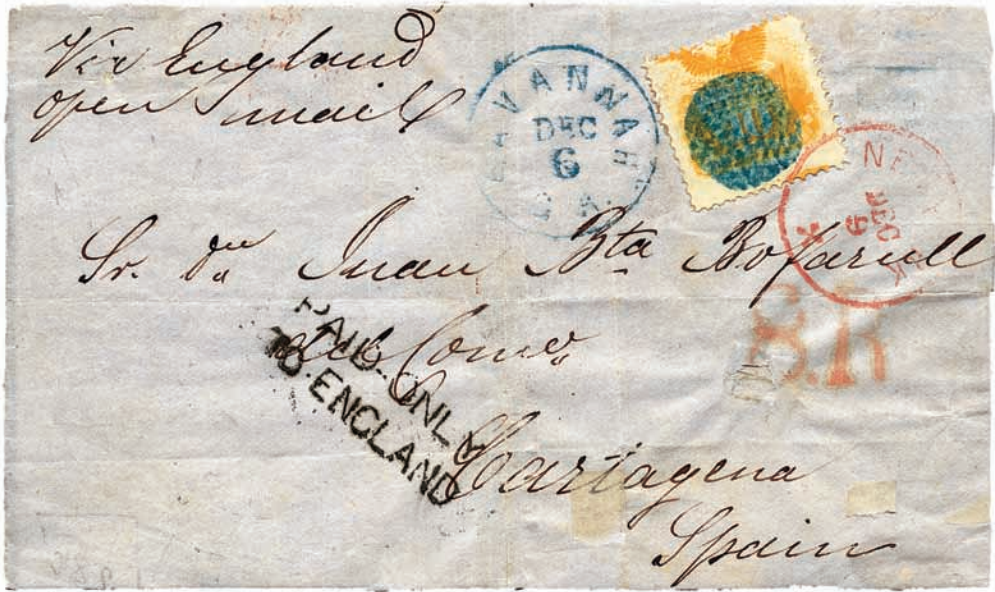 Via England
open mail
SAVANNAH
DEC
6
GA.
NEW
DEC
9
Sr. Dn Juan Bta Bofarull
del Como
8.R
PAID ONLY
TO ENGLAND
Cartagena
Spain